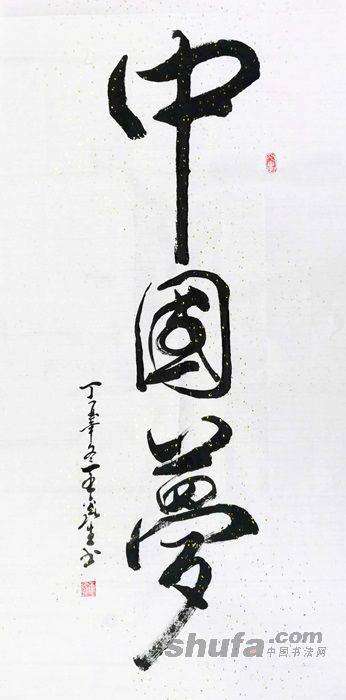 中國夢
丁酉年冬王生书
shufa.com
中国书法网